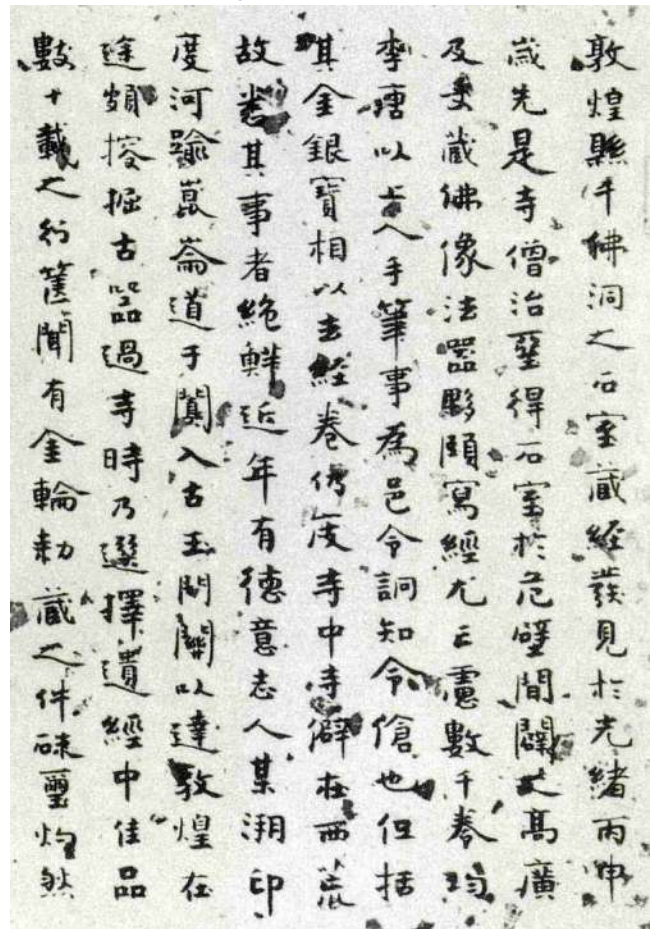 敦煌縣千佛洞之石室藏經發見於光緒丙申
歲先是寺僧治壁得石室於危壁間闢之高廣
及丈藏佛像法器夥頤寫經尤亡慮數千卷均
李唐以上人手筆事為邑令詗知令傖也但括
其金銀寶相以去經卷仍庋寺中寺僻在西荒
故悉其事者絶鮮近年有德意志人某溯印
度河踰崑崙道于闐入古玉門關以達敦煌在
途頗搜掘古器過寺時乃選擇遺經中佳品
數十載之行篋聞有金輪勅藏之件硃璽灼然